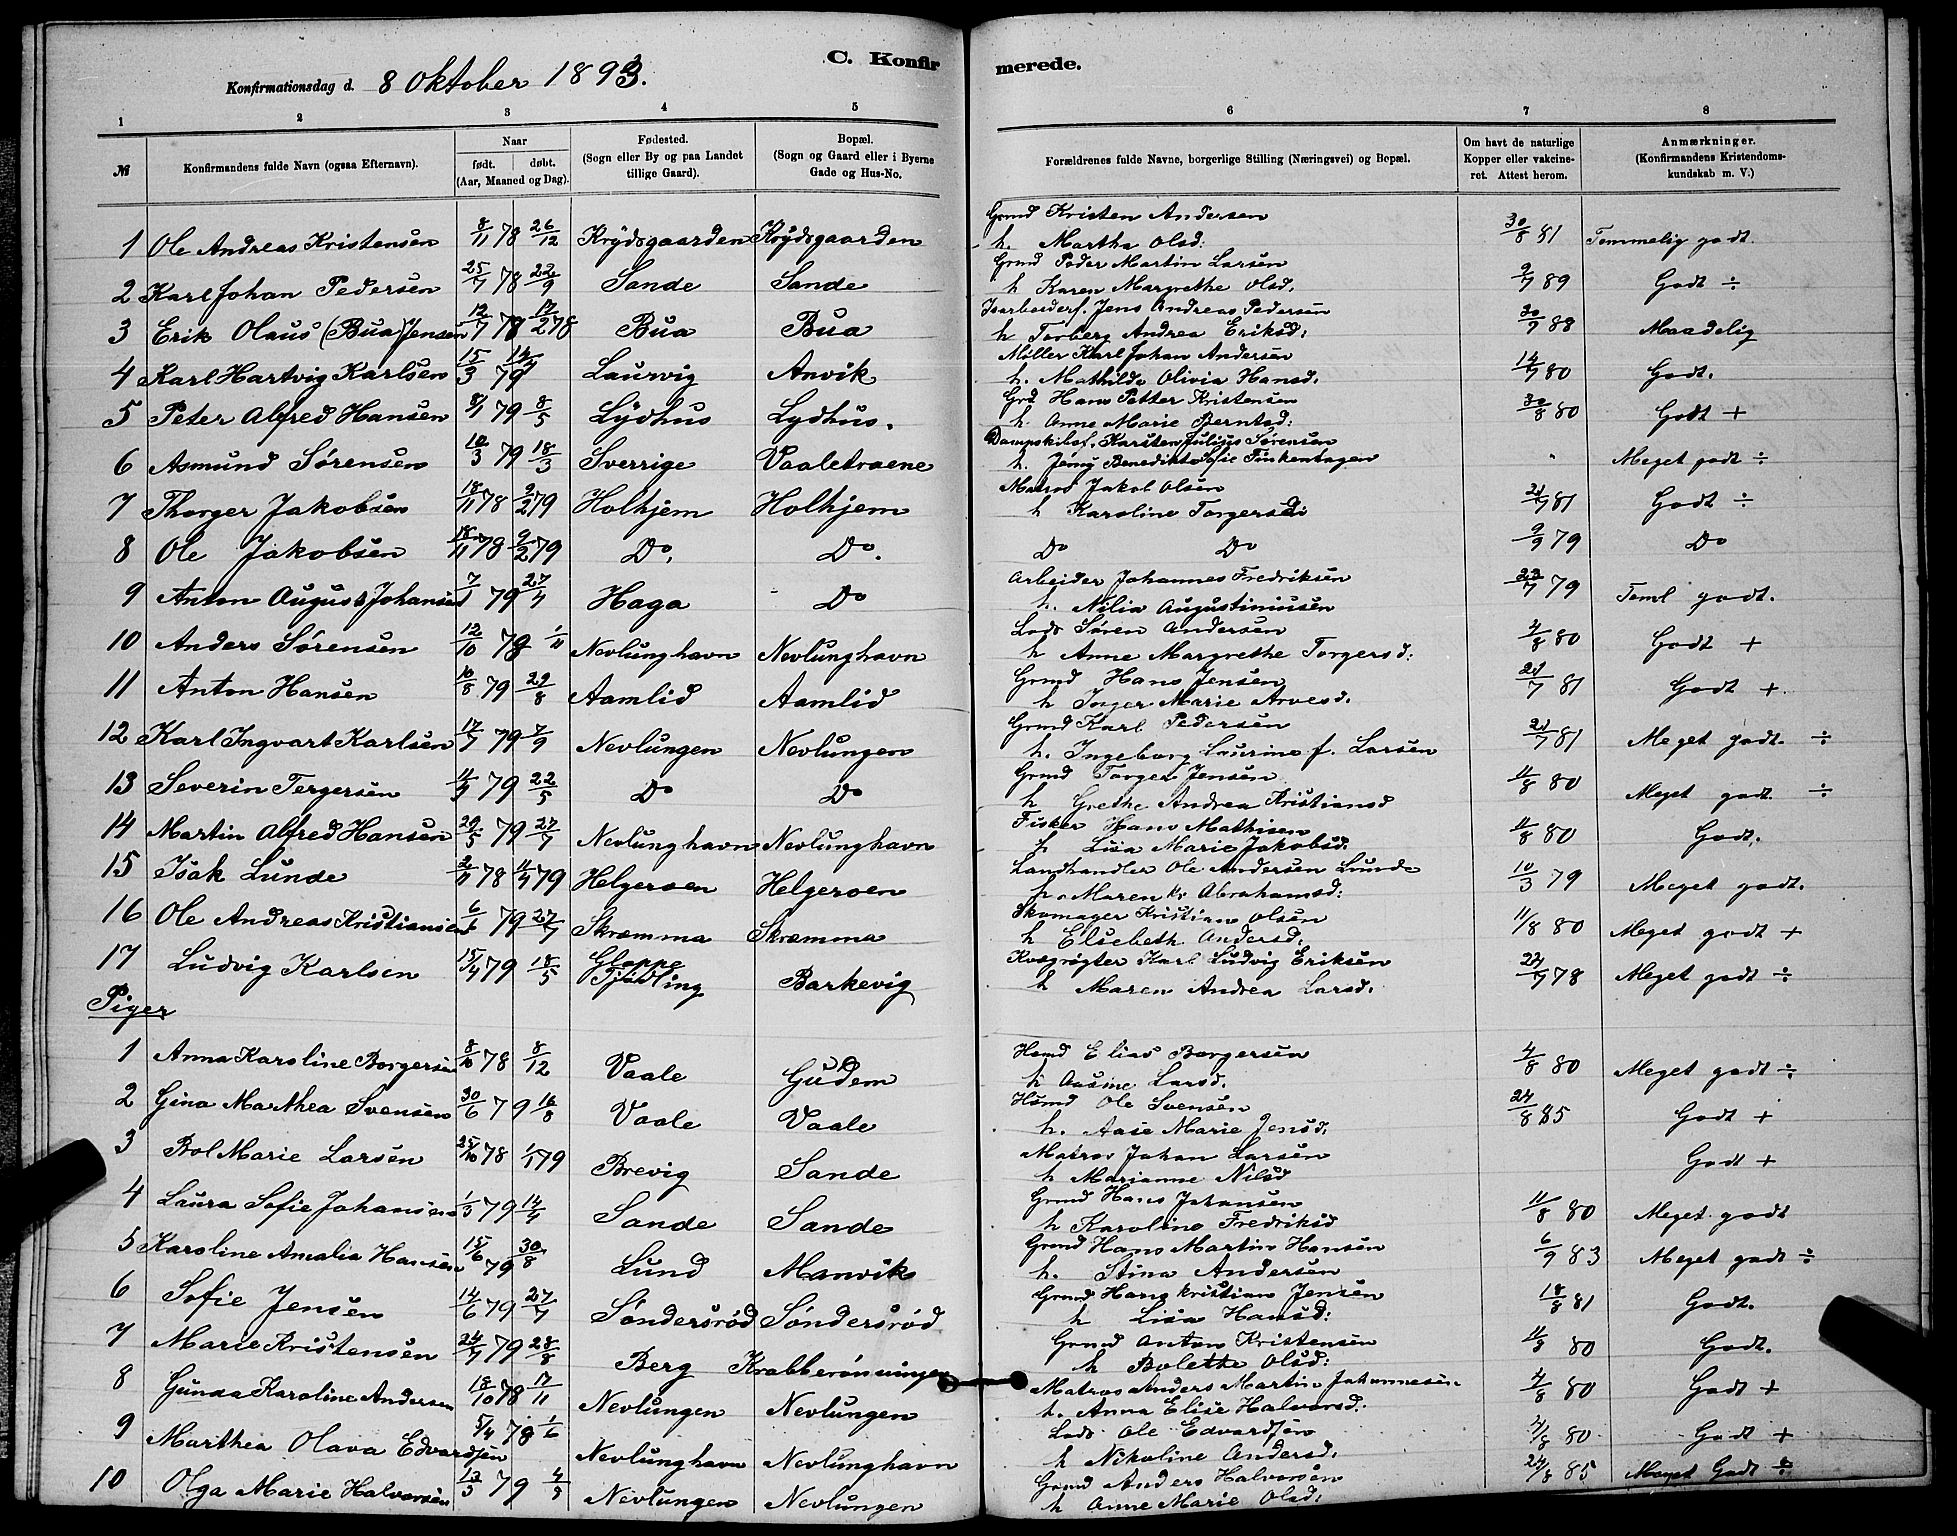 C. Konfirmerede.
Konfirmationsdag d. 8 Oktober 1893.
1 2 3 4 5 6 7 8
№ Konfirmandens fulde Navn (ogsaa Efternavn). Naar født. døbt. (Aar, Maaned og Dag). Fødested. (Sogn eller By og paa Landet tillige Gaard). Bopæl. (Sogn og Gaard eller i Byerne Gade og Hus-No. Forældrenes fulde Navne, borgerlige Stilling (Næringsvei) og Bopæl. Om havt de naturlige Kopper eller vakcineret. Attest herom. Anmærkninger. (Konfirmandens Kristendomskundskab m. V.)
1 Ole Andreas Kristensen 8/11 78 26/12 Krydsgaarden Krydsgaarden Grmd Kristen Andersen 30/8 81 Temmelig godt.
h. Marthe Olsd:
2 Karl Johan Pedersen 25/7 78 22/9 Sande Sande Grmd Peder Martin Larsen 9/7 89 Godt ÷
h Karen Margrethe Olsd.
3 Erik Olaus (Bua) Jensen 12/7 78 Bua Bua Jens Andreas Pedersen 30/7 88 Maadelig
h Torberg Andrea Eriksd:
4 Karl Hartvig Karlsen 15/3 79 14/4 Laurvig Anvik Møller Karl Johan Andersen 14/7 80 Godt.
h. Mathilde Olivia Hansd.
5 Peter Alfred Hansen 8/1 79 8/5 Lydhus Lydhus. Grd Hans Petter Kristensen 30/8 80 Godt +
h. Anne Marie Berntsd:
6 Asmund Sørensen 10/3 79 18/3 Sverrige Vaaletraene Dampskibsf. Karsten Julius Sørensen " Meget godt ÷
h. Jenny Benedikte Sofie Finkenhagen
7 Thorger Jakobsen 18/11 78 9/2 79 Holthjem Holthjem Matros Jakob Olsen 21/7 81 Godt ÷
h Karoline Torgersd:
8 Ole Jakobsen 18/11 78 9/2 79 Do. Do. Do Do 9/9 79 Do
9 Anton August Johansen 7/1 79 27/4 Haga Do Arbeider Johannes Fredriksen 23/7 79 Teml godt.
h. Nilia Augustiniusen
10 Anders Sørensen 12/10 78 1/11 Nevlunghavn Nevlunghavn Lods Søren Andersen 4/8 80 Godt +
h Anne Margrethe Torgersd:
11 Anton Hansen 10/8 79 29/8 Aamlid Aamlid Grmd Hans Jensen 21/7 81 Godt +
h Inger Marie Arvesd.
12 Karl Ingvart Karlsen 17/7 79 7/9 Nevlungen Nevlungen Grmd Karl Pedersen 21/7 81 Meget godt. ÷
h. Ingeborg Laurine f. Larsen
13 Severin Tergersen 4/3 79 22/5 Do Do Grmd Torger Jensen 11/8 80 Meget godt ÷
h Grethe Andrea Kristiansd
14 Martin Alfred Hansen 29/5 79 27/7 Nevlunghavn Nevlunghavn Fisker Hans Mathisen 11/8 80 Godt.
h Lisa Marie Jakobsd.
15 Isak Lunde 2/11 78 11/4 79 Helgeroen Helgeroen Landhandler Ole Andersen Lunde 10/3 79 Meget godt.
h. Maren Kr Abrahamsd:
16 Ole Andreas Kristiansen 6/6 79 27/7 Skræmma Skræmma Skomager Kristian Olsen 11/8 80 Meget godt +
h Elsebeth Andersd.
17 Ludvig Karlsen 15/4 79 18/5 Gloppe Tjødling Barkevig Kvægrøgter Karl Ludvig Eriksen 23/9 78 Meget godt ÷
h Maren Andrea Larsd.
Piger
1 Anna Karoline Borgersen 8/10 78 8/12 Vaale Gudem Hsmd Elias Borgersen 4/8 80 Meget godt ÷
h Aasine Larsd.
2 Gina Marthea Svensen 30/6 79 16/8 Vaale Vaale Hsmd Ole Svensen 24/8 85 Godt +
h. Aase Marie Jensd.
3 Bol Marie Larsen 25/10 78 1/1 79 Brevig Sande Matros Johan Larsen Godt +
h Marianne Nilsd
4 Laura Sofie Johansen 1/3 79 14/4 Sande Sande Grmd Hans Johansen 11/8 80 Meget godt
h Karoline Fredriksd
5 Karoline Amalia Hansen 15/6 79 30/8 Lund Manvik Grmd Hans Martin Hansen 6/9 83 Meget godt ÷
h. Stina Andersen
6 Sofie Jensen 14/6 79 27/7 Søndersrød Søndersrød Grmd Hans Kristian Jensen 18/8 81 Godt.
h Lisa Hansd:
7 Marie Kristensen 24/7 79 28/8 Berg Krabberønningen Grmd Anton Kristensen 11/8 80 Godt.
h Bolette Olsd:
8 Gunda Karoline Andersen 18/10 78 17/11 Nevlungen Nevlungen Matros Anders Martin Johannesen 4/8 80 Godt +
h. Anna Elise Halvorsd.
9 Marthea Olava Edvardsen 5/4 78 1/6 Nevlunghavn Nevlunghavn Lods Ole Edvardsen 4/8 80 Godt +
h Nikoline Andersd.
10 Olga Marie Halvorsen 13/3 79 Nevlungen Nevlungen Grmd Anders Halvorsen 24/8 85 Meget Godt ÷
h Anne Marie Olsd.